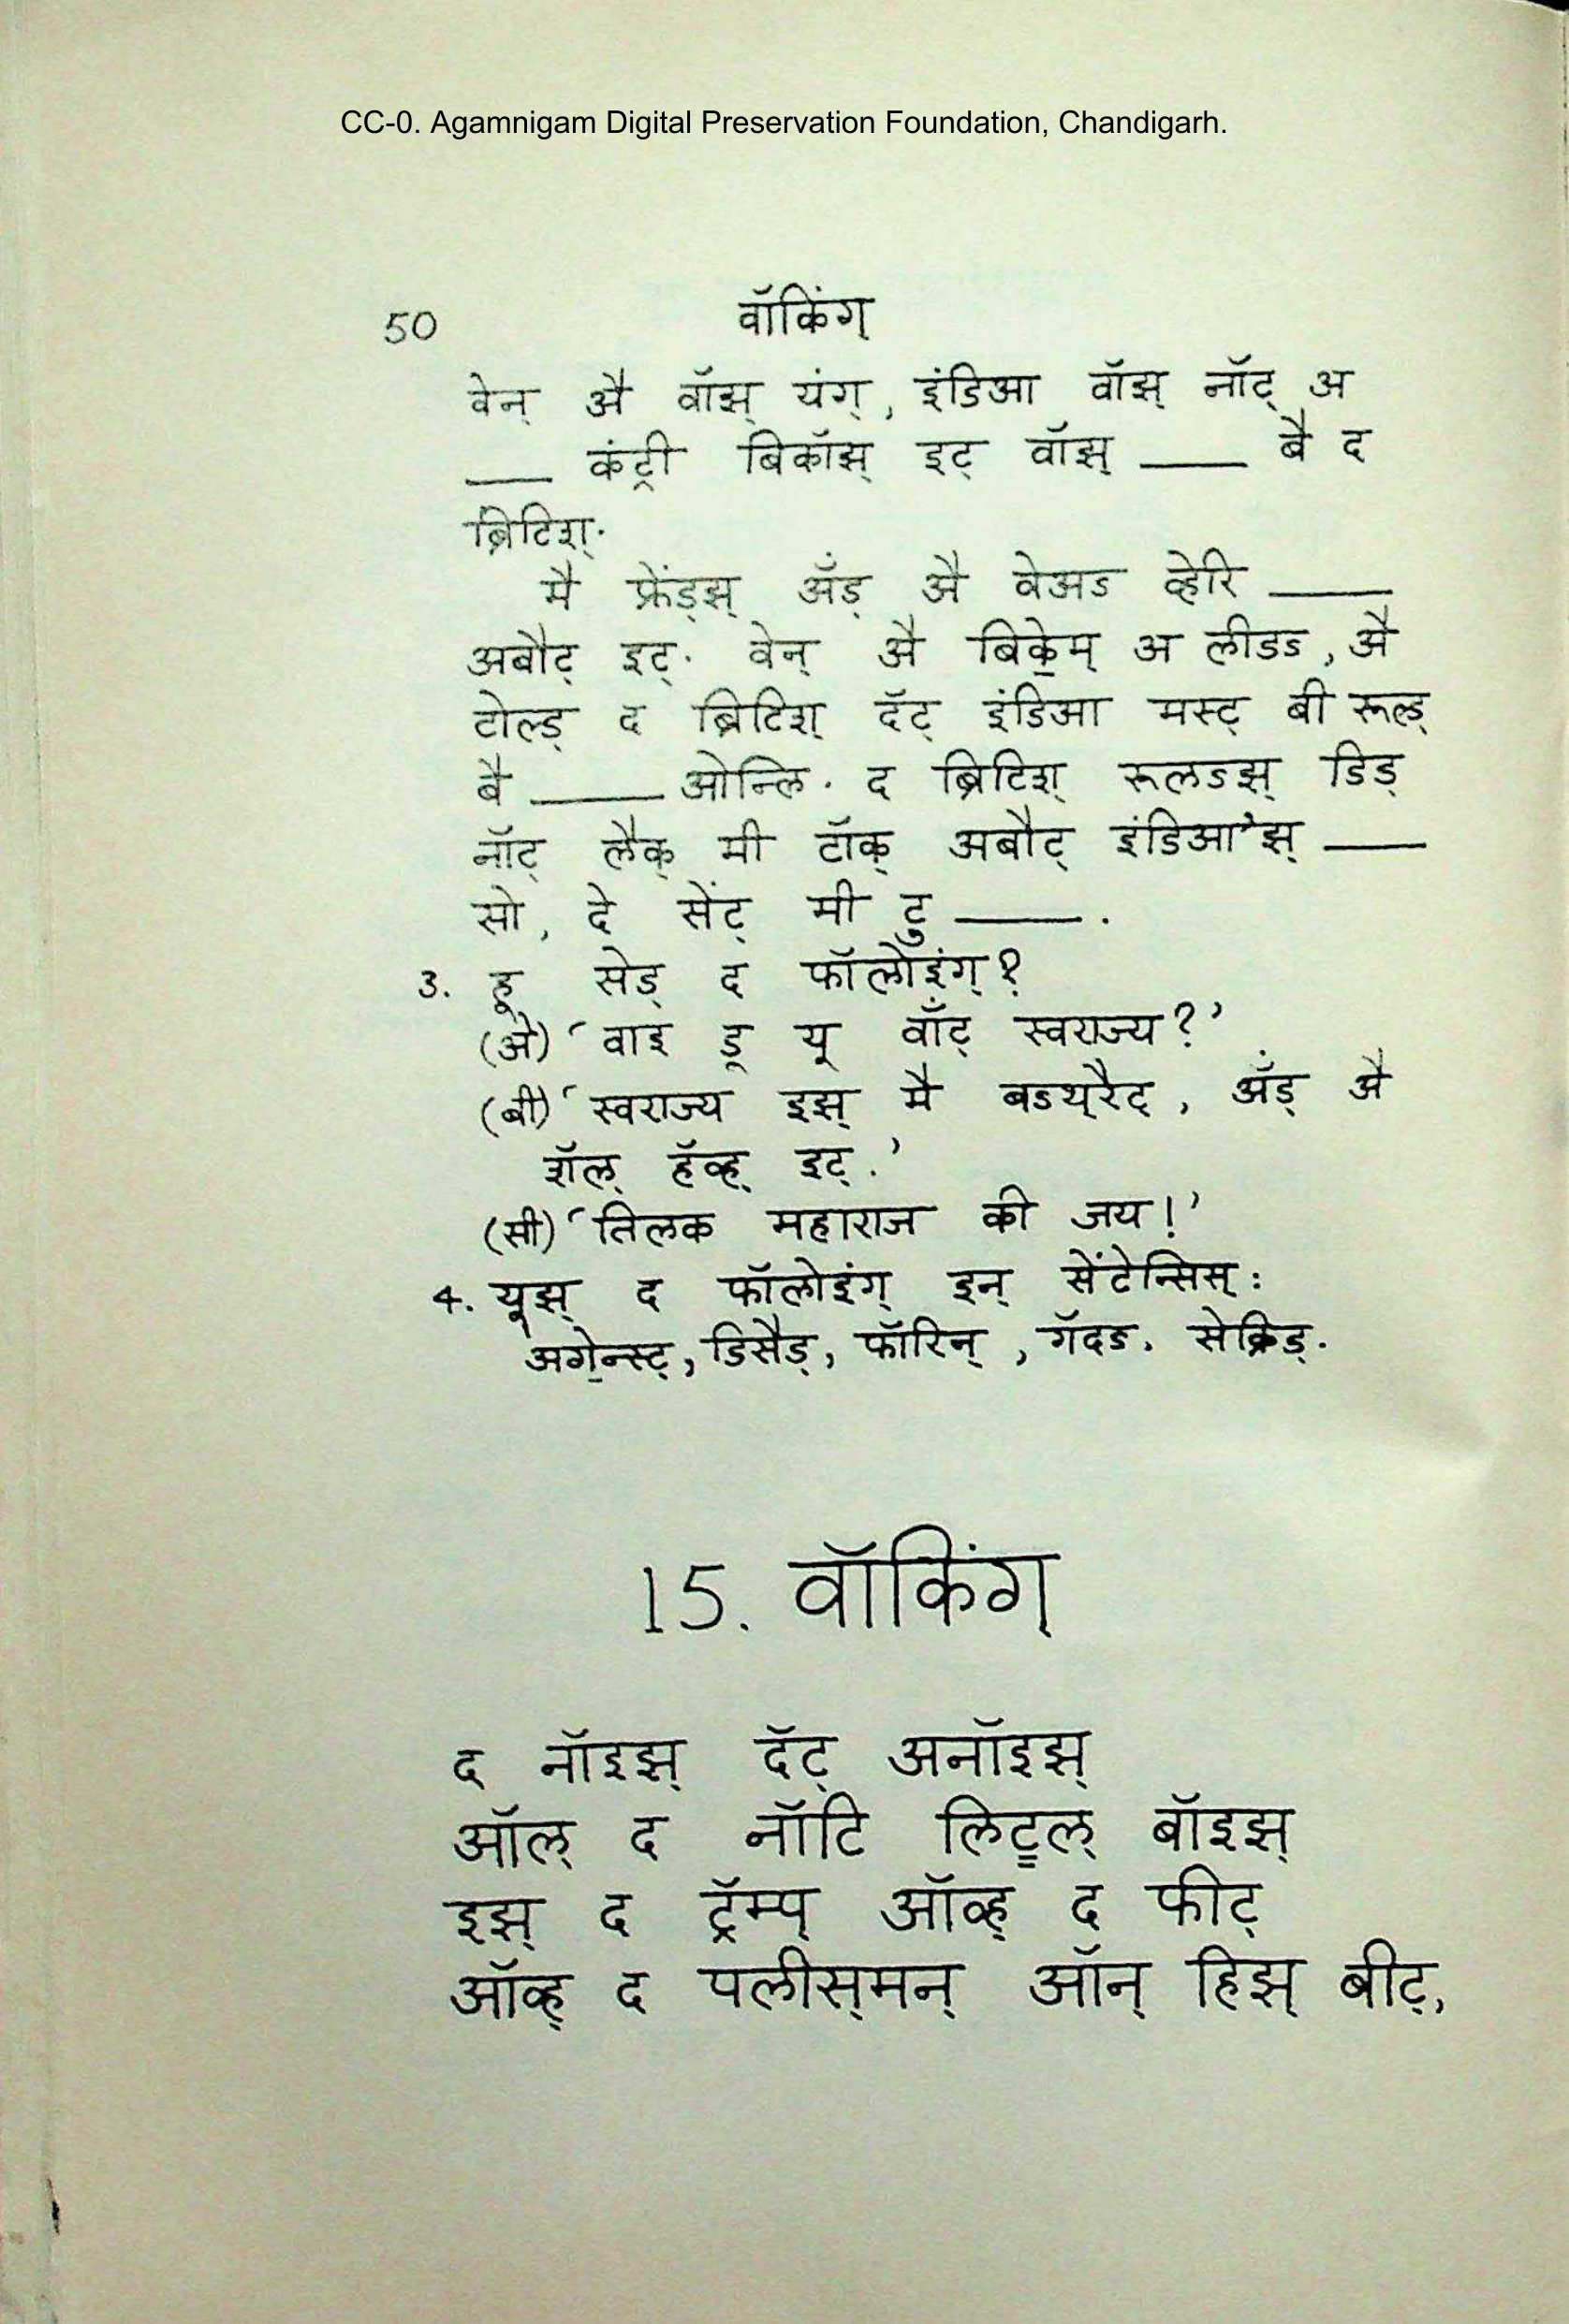 CC-0. Agamnigam Digital Preservation Foundation, Chandigarh.
50 वॉकिंग्
वेन् अै वॉझ् यंग्, इंडिआ वॉझ् नॉट् अ
___ कंट्री बिकॉझ् इट् वॉझ् ___ बै द
ब्रिटिश्.
मै फ्रेंड्झ् अँड् अै वेअऽ व्हेरि ___
अबौट् इट्. वेन् अै बिके॒म् अ लीडऽ, अै
टोल्ड् द ब्रिटिश् दॅट् इंडिआ मस्ट् बी रूल्ड्
बै ___ ओन्लि. द ब्रिटिश् रूलऽझ् डिड्
नॉट् लैक् मी टॉक् अबौट् इंडिआ'झ् ___
सो, दे सेंट् मी टु ___.
3. हू सेड् द फॉलोइंग्?
(अे) ‘वाइ डू यू वॉंट् स्वराज्य?’
(बी) ‘स्वराज्य इझ् मै बऽथ्‌रैट्, अँड् अै
शॅल् हॅव्ह् इट्.’
(सी) ‘तिलक महाराज की जय!’
4. यूझ् द फॉलोइंग् इन् सेंटेन्सिस्:
अगे॒न्स्ट्, डिसैड्, फॉरिन्, गॅदऽ, सेक्रिड्.
15. वॉकिंग्
द नॉइझ् दॅट् अनॉइझ्
ऑल् द नॉटि लिट्ल् बॉइझ्
इझ् द ट्रॅम्प् ऑव्ह् द फीट्
ऑव्ह् द पलीस्‌मन् ऑन् हिझ् बीट्,